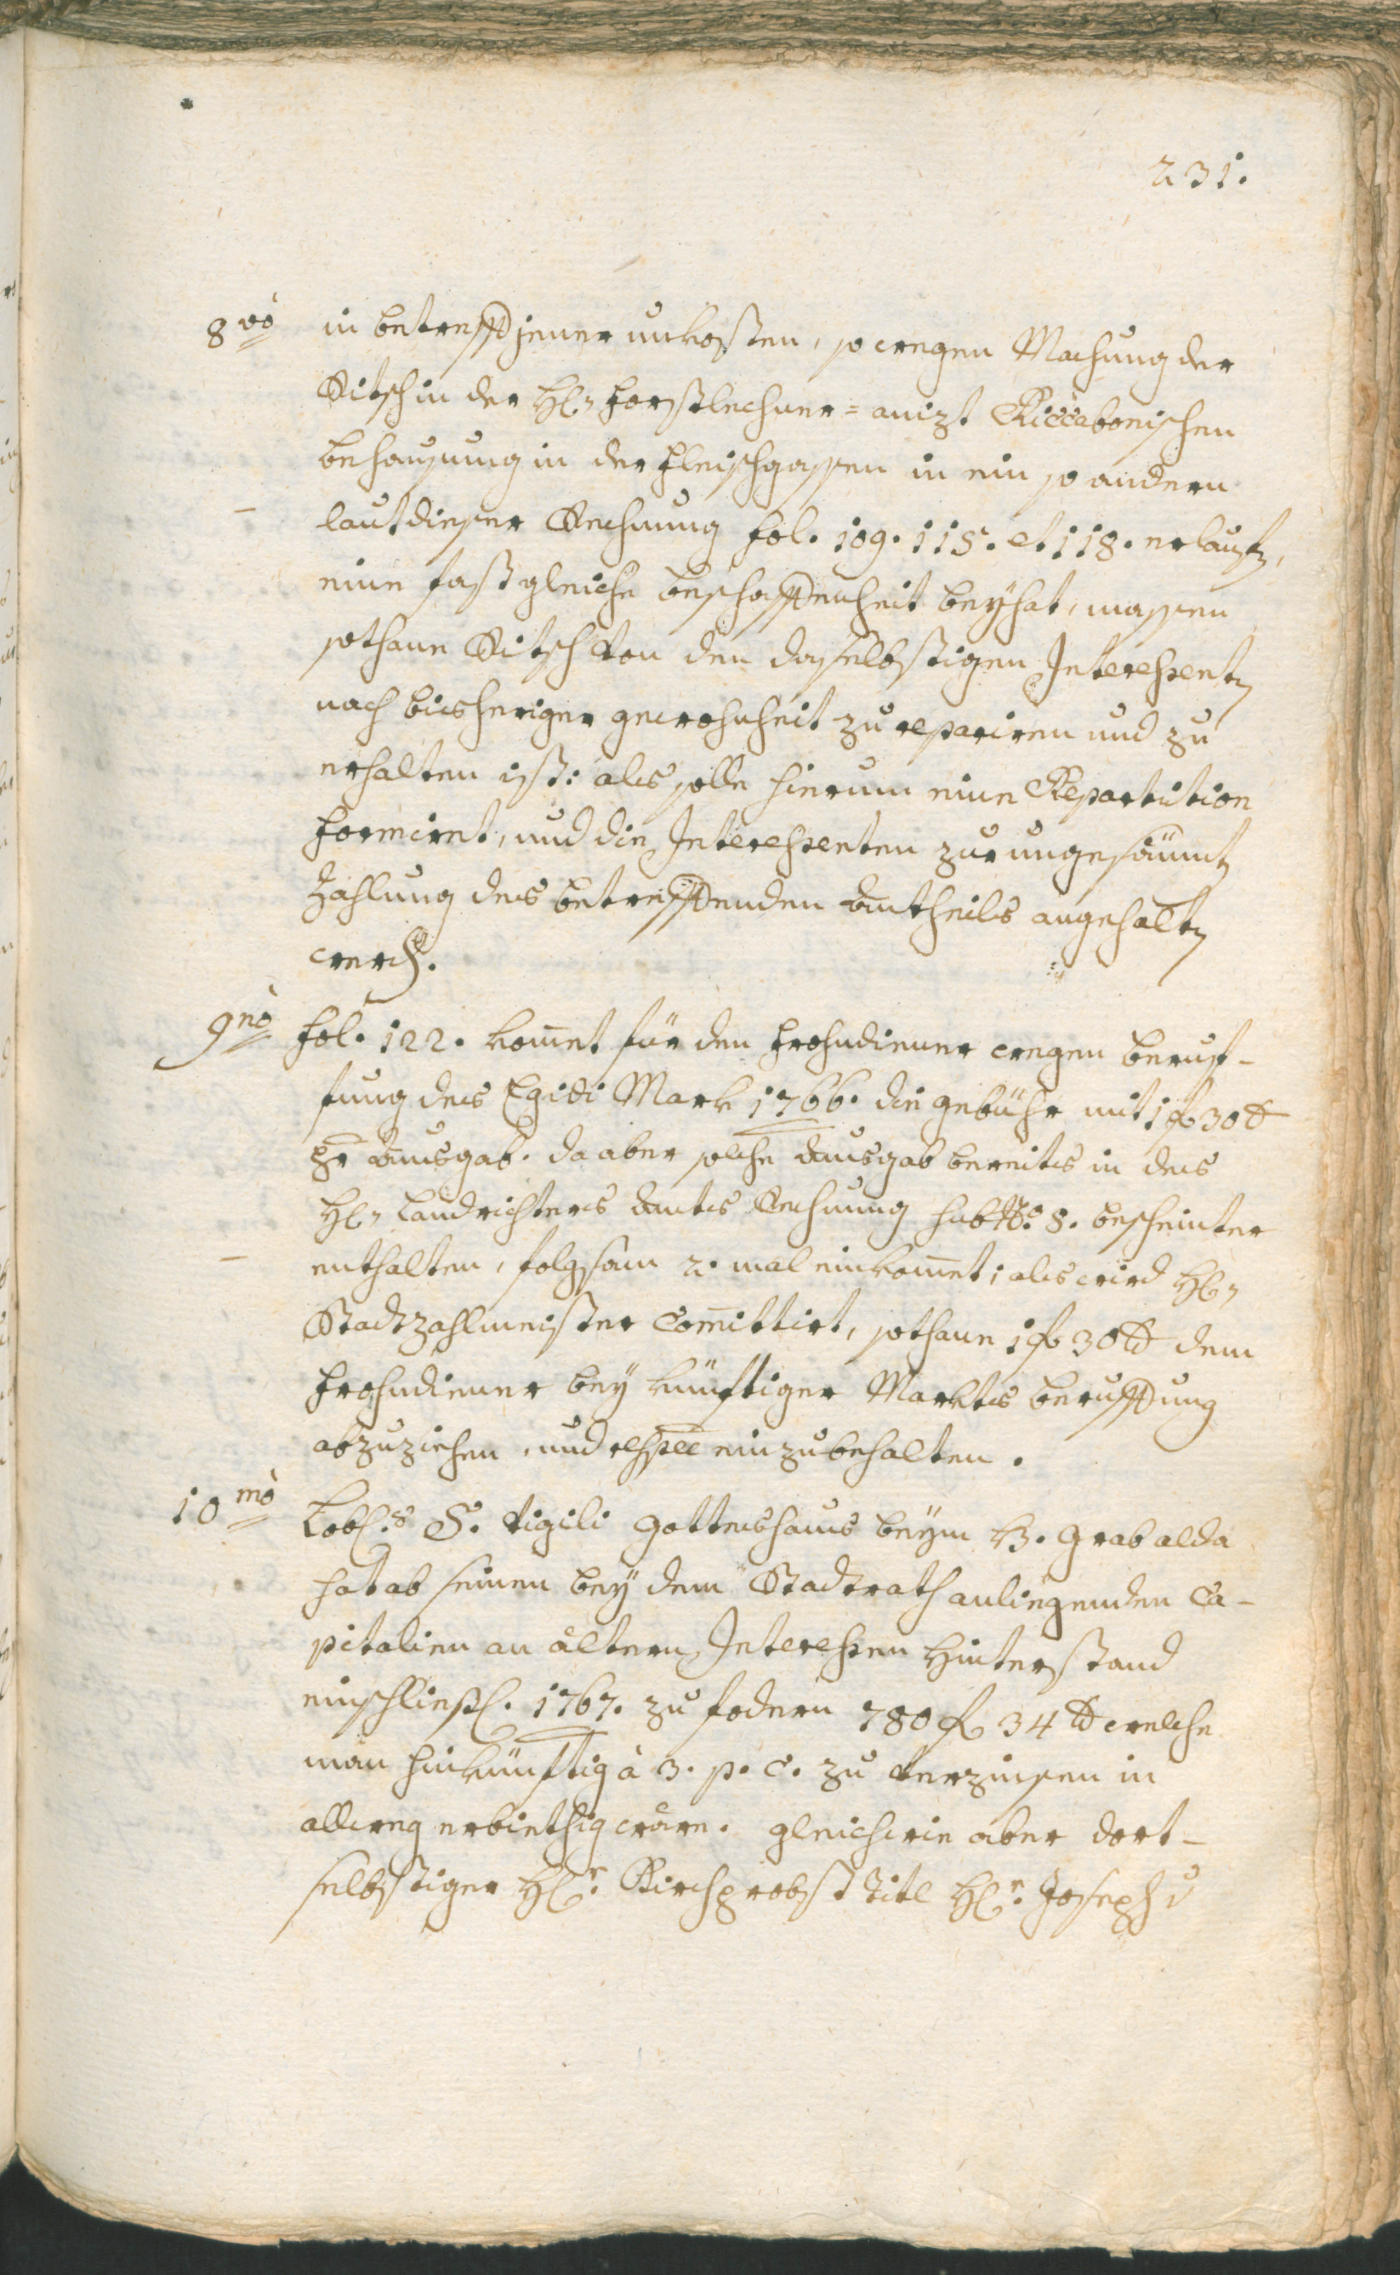 231.
8vo in betreff jener unkosten, so wegen Machung der
Ritsch in der H: Forstlechner= anizt Riccabonischen
behausung in der fleischgassen in ein so andern
laut dieser Rechnung fol. 109. 115. et 118. erlauffen,
eine fast gleiche beschaffenheit beyhat, massen
sothane Ritsch von den daselbstigen Interessenten
nach bisheriger gewohnheit zu repariren und zu
erhalten ist: als solle hierum eine Repartition
formirt, und die Interessenten zur ungesäumten
Zahlung des betreffenden antheils angehalten
werden.
9no fol. 122. komet für den frohndiener wegen beruf-
fung des Egidi Mark 1766. die gebühr mit 1 f 30 x
per ausgab. da aber solche ausgab bereits in des
H: Landrichters Amts Rechnung sub No. 8. bescheinter
enthalten, folgsam 2. mal einkomet; als wird H:
Stadtzahlmeister Comittirt, sothane 1 f 30 x dem
frohndiener bey künftiger Markts beruffung
abzuziehen, und respée einzubehalten.
10mo Lobl.s S. Vigili Gotteshaus beym H. Grab alda
hat ab seinen bey dem Stadtrath anliegenden Ca-
pitalien an ältern Interessen Hinterstand
einschliesl. 1767. zu fodern 780 f 34 x welche
man hinkünftig à 3. p. C. zu verzinsen in
allweg erbiethig wäre. gleichwie aber dort-
selbstiger H:r Kirchprobst Titl H:r Joseph v